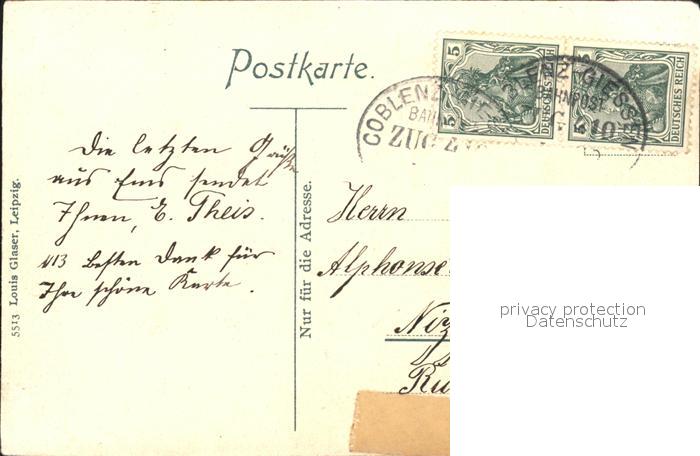 Postkarte.
5
DEUTSCHES REICH
5
DEUTSCHES REICH
COBLENZ
BAH
ZUG
ENZ-GIESSEN
HNPOST
Die letzten Grüße
aus Ems sendet
Ihnen, E. Theis.
Besten Dank für
Ihre schöne Karte.
5513 Louis Glaser, Leipzig.
Nur für die Adresse.
Herrn
Alphonse
privacy protection
Datenschutz